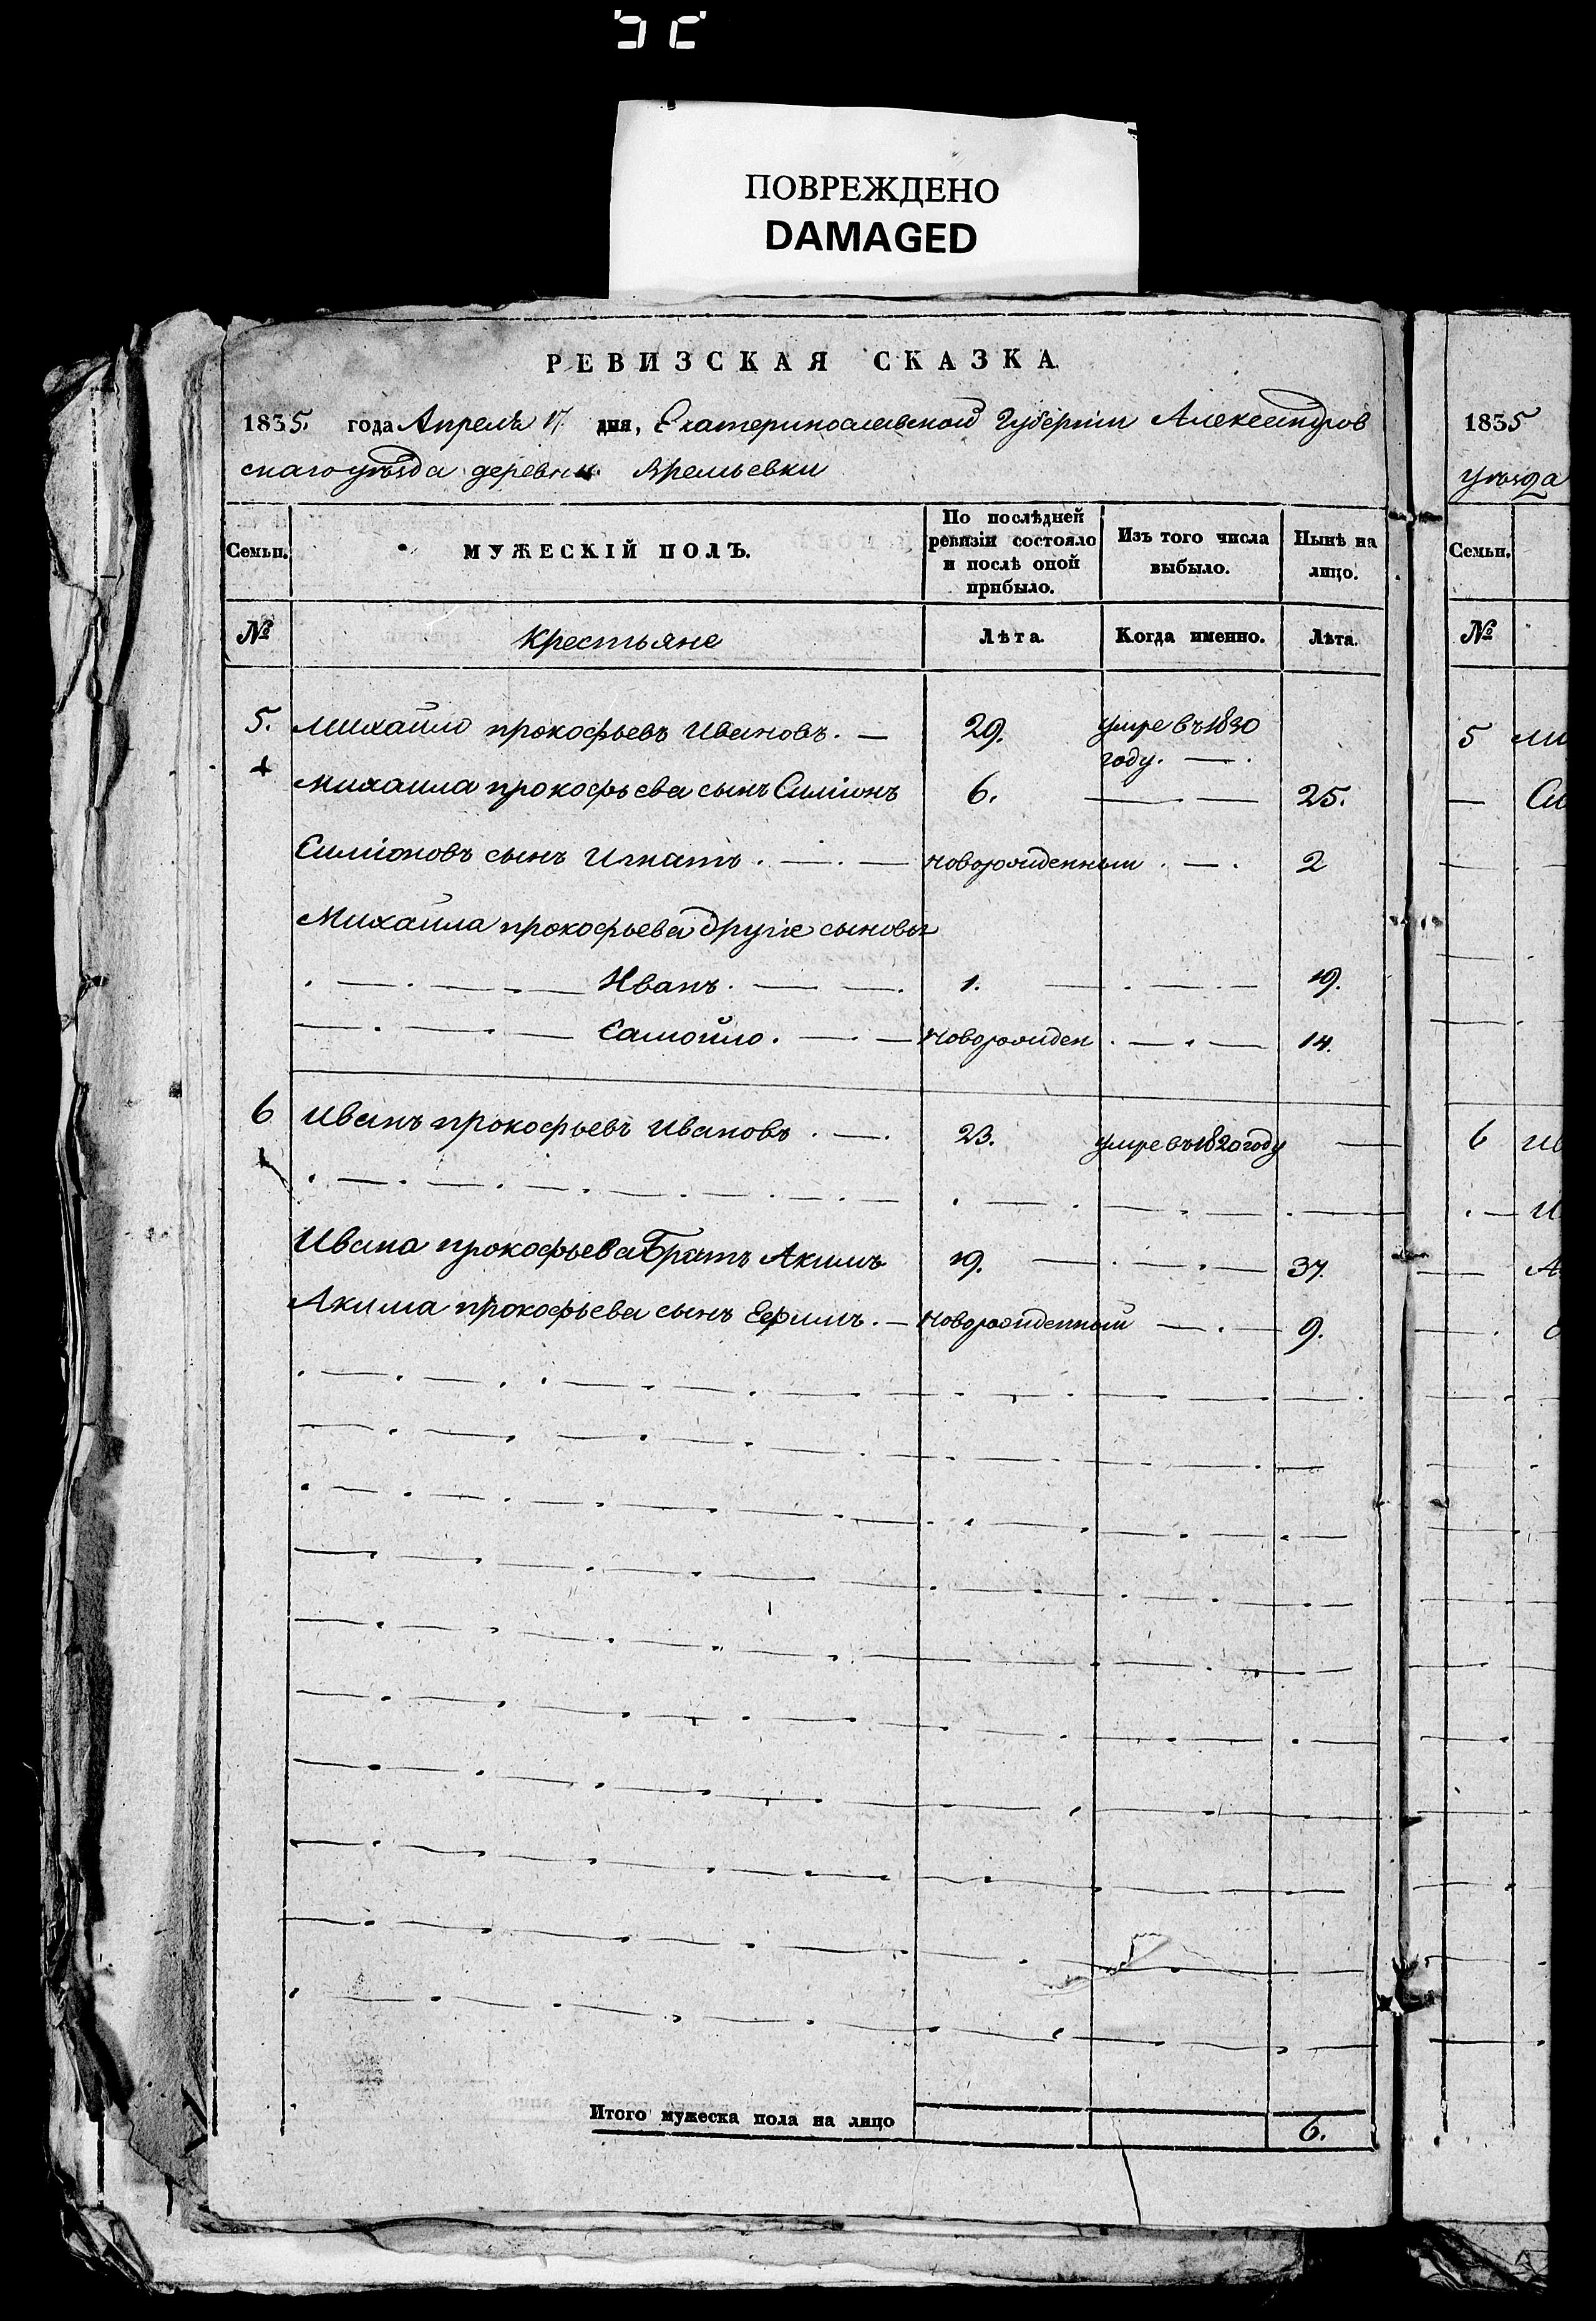 ПОВРЕЖДЕНО
DAMAGED
РЕВИЗСКАЯ СКАЗКА
1835. года Апреля 17 дня, Екатеринославской Губерніи Александров
скаго уѣзда деревни
Семьи. МУЖЕСКІЙ ПОЛЪ. По послѣдней ревизіи состояло и послѣ оной прибыло. Изъ того числа выбыло. Нынѣ на лицо.
№ Крестьяне Лѣта. Когда именно. Лѣта.
5. Михайло прокофьевъ Ивановъ. — 29. умре въ 1830 году. — .
Михаила прокофьева сынъ Симіонъ 6. — . — 25.
Симіоновъ сынъ Игнатъ . — . — новорожденный . — . 2
Михайла прокофьева другіе сыновья
. — . — . — Иванъ. — — . 1. — . — . — 19.
— . — . — Самойло. — . — Новорожден . — . — 14.
6 Иванъ прокофьевъ Ивановъ . — . 23. умре въ 1820 году —
Ивана прокофьева Братъ Акимъ 19. — . — . — 37.
Акима прокофьева сынъ Ефимъ. — Новорожденный — . — 9.
Итого мужеска пола на лицо 6.
1835
уѣзда
Семьи.
№
5 Ми
— Си
6 Ив
. — И
— А